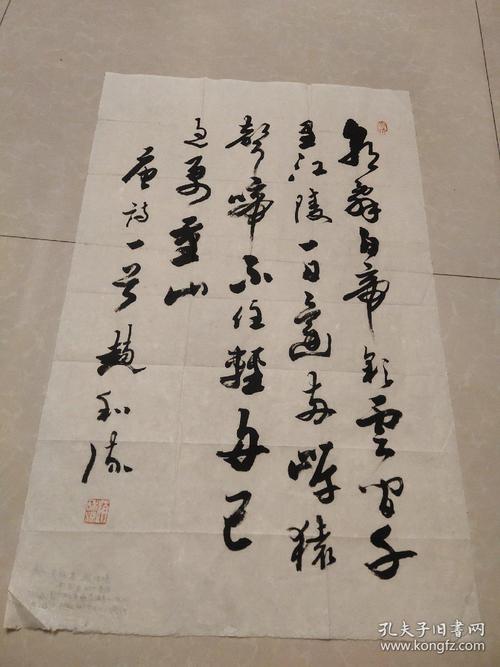 朝辭白帝彩雲间千
里江陵一日還两岸猿
聲啼不住輕舟已
过万重山
唐詩一首 趙和
孔夫子旧书网
www.kongfz.com